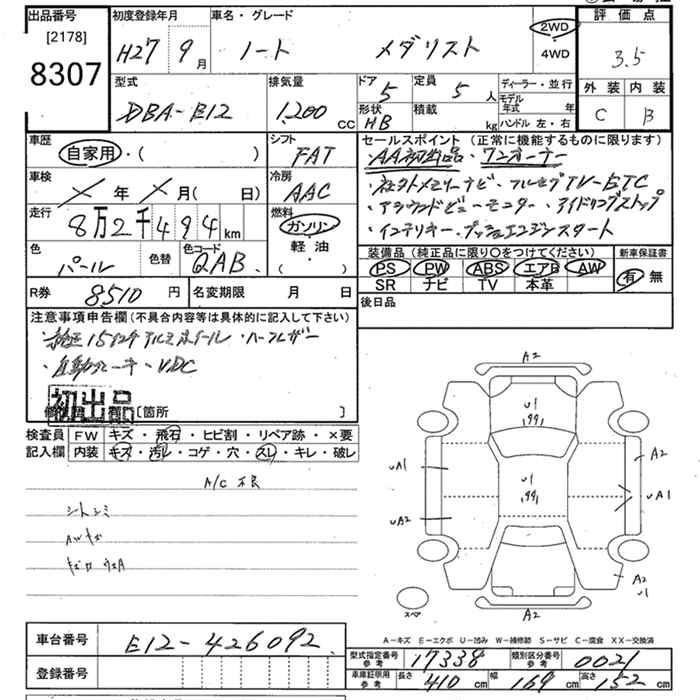 出品番号
[2178]
8307
初度登録年月
H27 9月
車名・グレード
ノート メダリスト
2WD
4WD
評価点
3.5
外装 内装
C B
型式
DBA-E12
排気量
1,200 CC
ドア 5
形状 HB
定員 5人
積載 kg
ディーラー・並行
モデル年式 年
ハンドル 左・右
車歴
自家用・( )
シフト
FAT
車検
年 月( 日)
冷房
AAC
走行
8万2千494km
燃料
ガソリン
軽油
・( )
色
パール
色替
色コード
QAB
セールスポイント(正常に機能するものに限ります)
AA初出品・ワンオーナー
・社外メモリーナビ・フルセグTV・ETC
・アラウンドビューモニター・アイドリングストップ
・インテリキー・プッシュエンジンスタート
装備品(純正品に限り○をつけてください)
PS PW ABS エアB AW
SR ナビ TV 本革
新車保証書
有 無
R券 8510円
名変期限 月 日
後日品
注意事項申告欄(不具合内容等は具体的に記入して下さい)
・純正15インチアルミホイール・ハーフレザー
・自動ブレーキ・VDC
初出品
[箇所 ]
検査員 FW キズ・飛石・ヒビ割・リペア跡・×要
記入欄 内装 キズ・汚レ・コゲ・穴・スレ・キレ・破レ
A/C 不良
シートシミ
AWキズ
A2
U1
A2
UA1
U1
UA1
UA2
A2
U1
スペア
A2
A-キズ E-エクボ U-凹み W-補修跡 S-サビ C-腐食 XX-交換済
車台番号 E12-426092
登録番号
型式指定番号 参考 17338
類別区分番号 参考 0021
車庫証明用 参考 長さ 410cm 幅 169cm 高さ 152cm